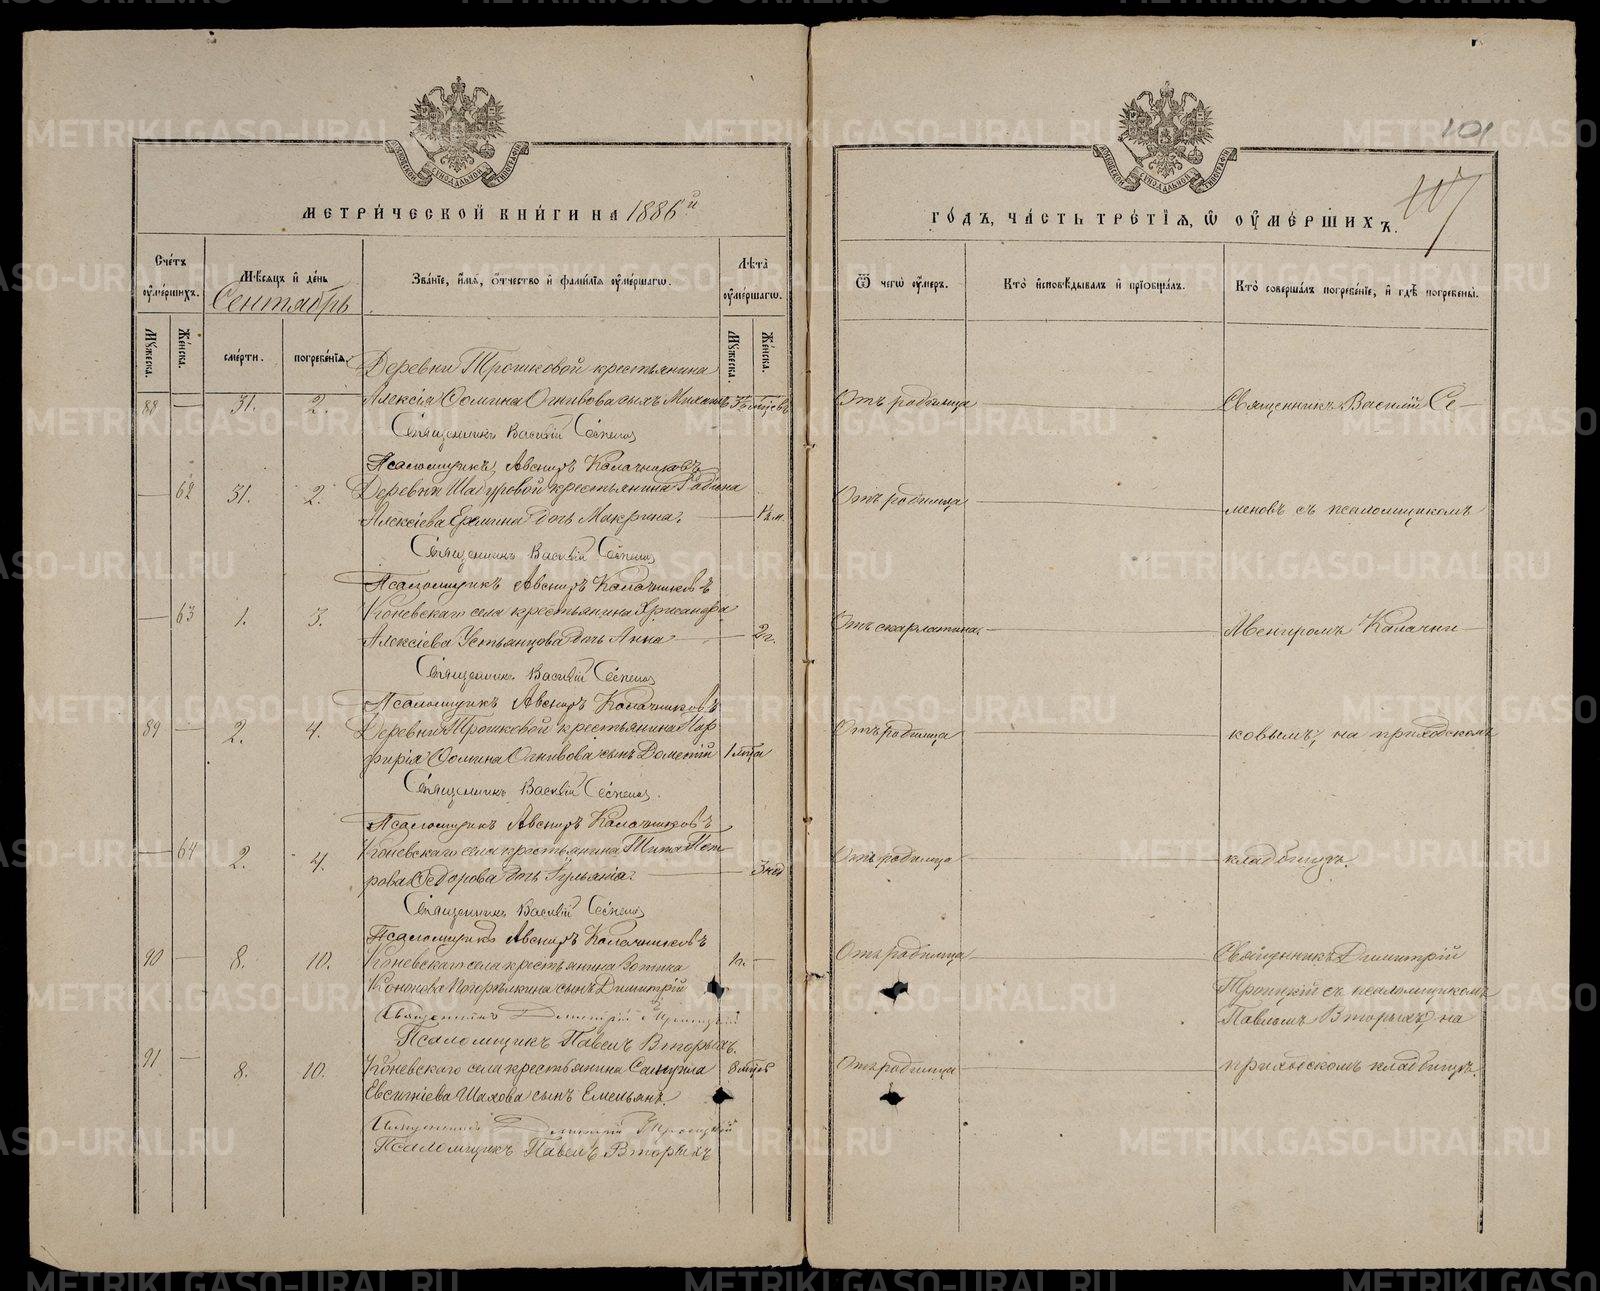 МЕТРИ́ЧЕСКОЙ КНИ́ГИ НА 1886й
Сче́тъ оуме́ршихъ.
Мѣсяцъ и де́нь
Сентябрь
Зва́нїе, и́мя, о҆́тчество и фами́лїя оуме́ршагѡ.
Лѣта̀ оуме́ршагѡ.
Му́жеска.
Же́нска.
сме́рти.
погребе́нїя.
Му́жеска.
Же́нска.
Деревни Трошковой крестьянина
88 — 31. 2. Алексія Ѳомина Огнивова сынъ Михаилъ
Священникъ Василій Семеновъ
Псаломщикъ Авениръ Калачниковъ
— 62 31. 2. Деревни Шабуровой крестьянина Родіона
Алексіева Еремина дочь Макрина.
Священникъ Василій Семеновъ
Псаломщикъ Авениръ Калачниковъ
— 63 1. 3. Коневскаго села крестьянина Хрисанфа
Алексіева Устьянцова дочь Анна — 2 г.
Священникъ Василій Семеновъ
Псаломщикъ Авениръ Калачниковъ
89 — 2. 4. Деревни Трошковой крестьянина Пор
фирія Ѳомина Огнивова сынъ Дометій 1 мѣца
Священникъ Василій Семеновъ.
Псаломщикъ Авениръ Калачниковъ
— 64 2. 4. Коневскаго села крестьянина Тита Пет
рова Ѳедорова дочь Іульянія. — 3 нед
Священникъ Василій Семеновъ
Псаломщикъ Авениръ Калачниковъ
90 — 8. 10. Коневскаго села крестьянина Зотика 1 г. —
Кононова Погорѣлкина сынъ Димитрій
Священникъ Димитрій Троицкій
Псаломщикъ Павелъ Вторыхъ.
91 — 8. 10. Коневскаго села крестьянина Самуила 8 мѣцъ
Евсигніева Шахова сынъ Емельянъ.
Священникъ Димитрій Троицкій
Псаломщикъ Павелъ Вторыхъ
101
107
ГО́ДЪ, ЧА́СТЬ ТРЕ́ТЇЯ, Ѡ ОУМЕ́РШИХЪ.
Ѿ чегѡ̀ оу́меръ.
Кто̀ и҆сповѣ́дывалъ и҆ прїобща́лъ.
Кто̀ соверша́лъ погребе́нїе, и҆ гдѣ̀ погребены̀.
Отъ родимца — Священникъ Василій Се—
Отъ родимца — меновъ съ псаломщикомъ
Отъ скарлатины — Авениромъ Калачни—
Отъ родимца — ковымъ, на приходскомъ
Отъ родимца — кладбищѣ.
Отъ родимца — Священникъ Димитрій
Троицкій съ псаломщикомъ
Павломъ Вторыхъ, на
Отъ родимца — приходскомъ кладбищѣ.
METRIKI.GASO-URAL.RU